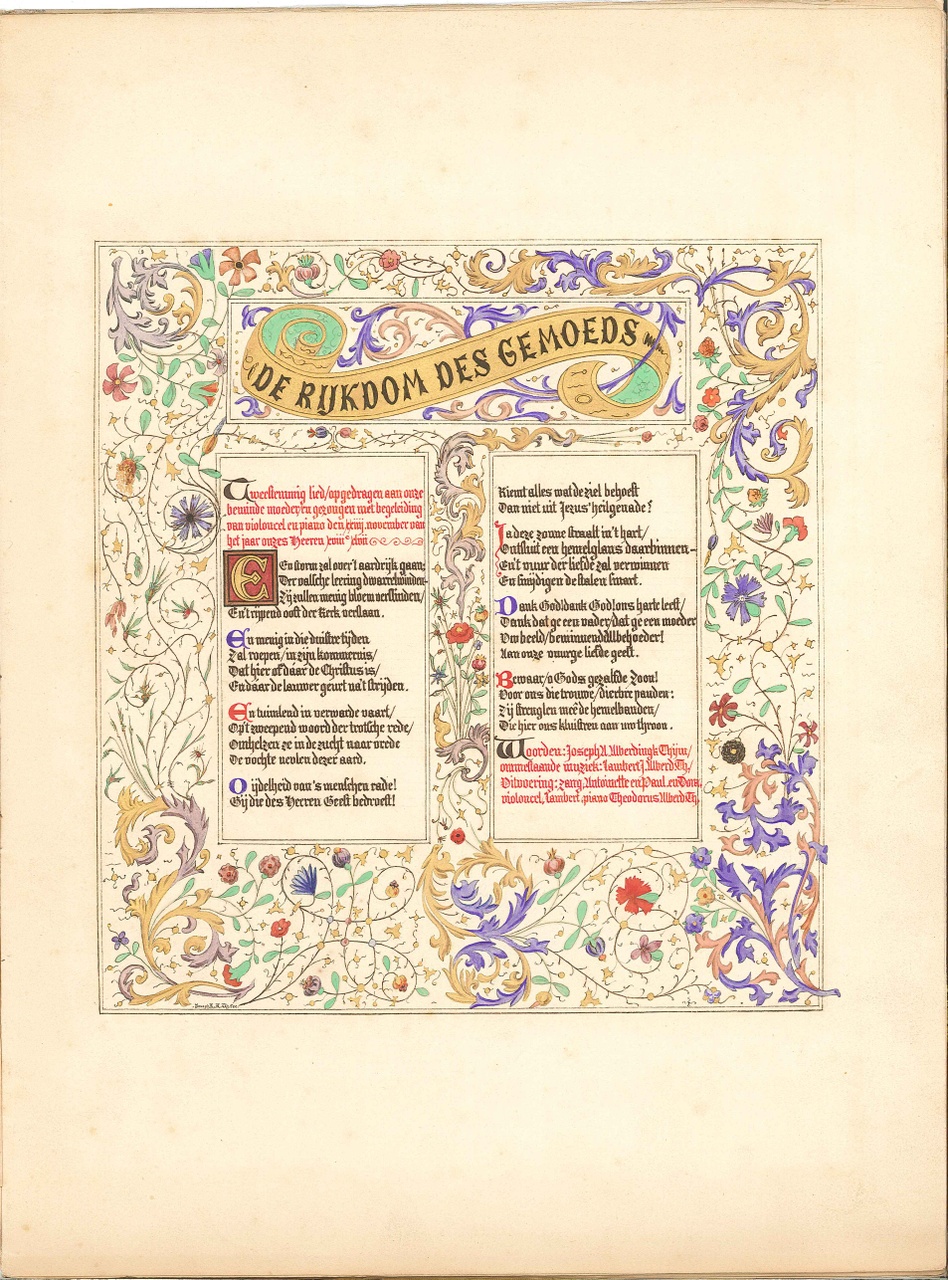 DE RIJKDOM DES GEMOEDS
Tweestemmig lied/opgedragen aan onze
beminde moeder en gezongen met begeleiding
van violoncel en piano den xxiij. november van
het jaar onzes Heeren
Een storm zal over 't aardrijk gaan;
Der valsche leering dwarrelwinden
Zij zullen menig bloem verslinden/
En 't rijpend ooft der Kerk verslaan.
En menig in die duistre tijden
Zal roepen/in zijn kommernis/
Dat hier of dáar de Christus is/
En dáar de lauwer geurt na 't strijden.
En tuimlend in verwarde vaart/
Op 't zweepend woord der trotsche rede/
Omhelzen ze in de zucht naar vrede
De vochte nevlen dezer aard.
O ijdelheid van 's menschen rade!
Gij die des Heeren Geest bedroeft!
Kiemt alles wat de ziel behoeft
Dan niet uit Jezus' heilgenade?
Ja deze zonne straalt in 't hart/
Ontsluit een hemelglans daarbinnen—
En 't vuur der liefde zal verwinnen
En snijdigen de stalen smart.
Dank God! dank God! ons harte leeft/
Dank dat ge een vader/dat ge een moeder
Uw beeld/beminnend Albehoeder!
Aan onze vuurge liefde geeft.
Bewaar/o Gods gezalfde Zoon!
Voor ons die trouwe/dierbre panden:
Zij strenglen meê de hemelbanden/
Die hier ons kluistren aan uw throon.
Woorden: Joseph A. Alberdingk Thijm/
ommestaande muziek: Lambert J. Alberd. Th./
Uitvoering: zang, Antoinette en Paul. en Dora,
violoncel, Lambert, piano Theodorus Alberd. Th.